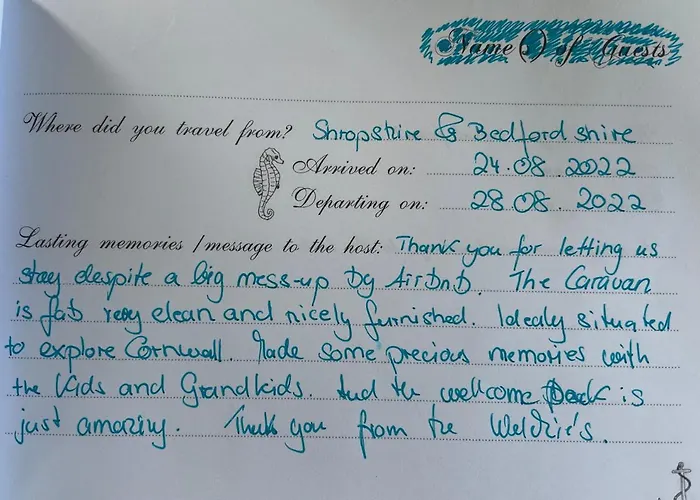 Name(s) of Guests
Where did you travel from? Shropshire & Bedford shire
Arrived on: 24.08.2022
Departing on: 28.08.2022
Lasting memories / message to the host: Thank you for letting us
stay despite a big mess-up by AirBnB. The Caravan
is fab very clean and nicely furnished. Idealy situated
to explore Cornwall. Made some precious memories with
the Kids and Grandkids. And the wellcome Pack is
just amazing. Thank you from the